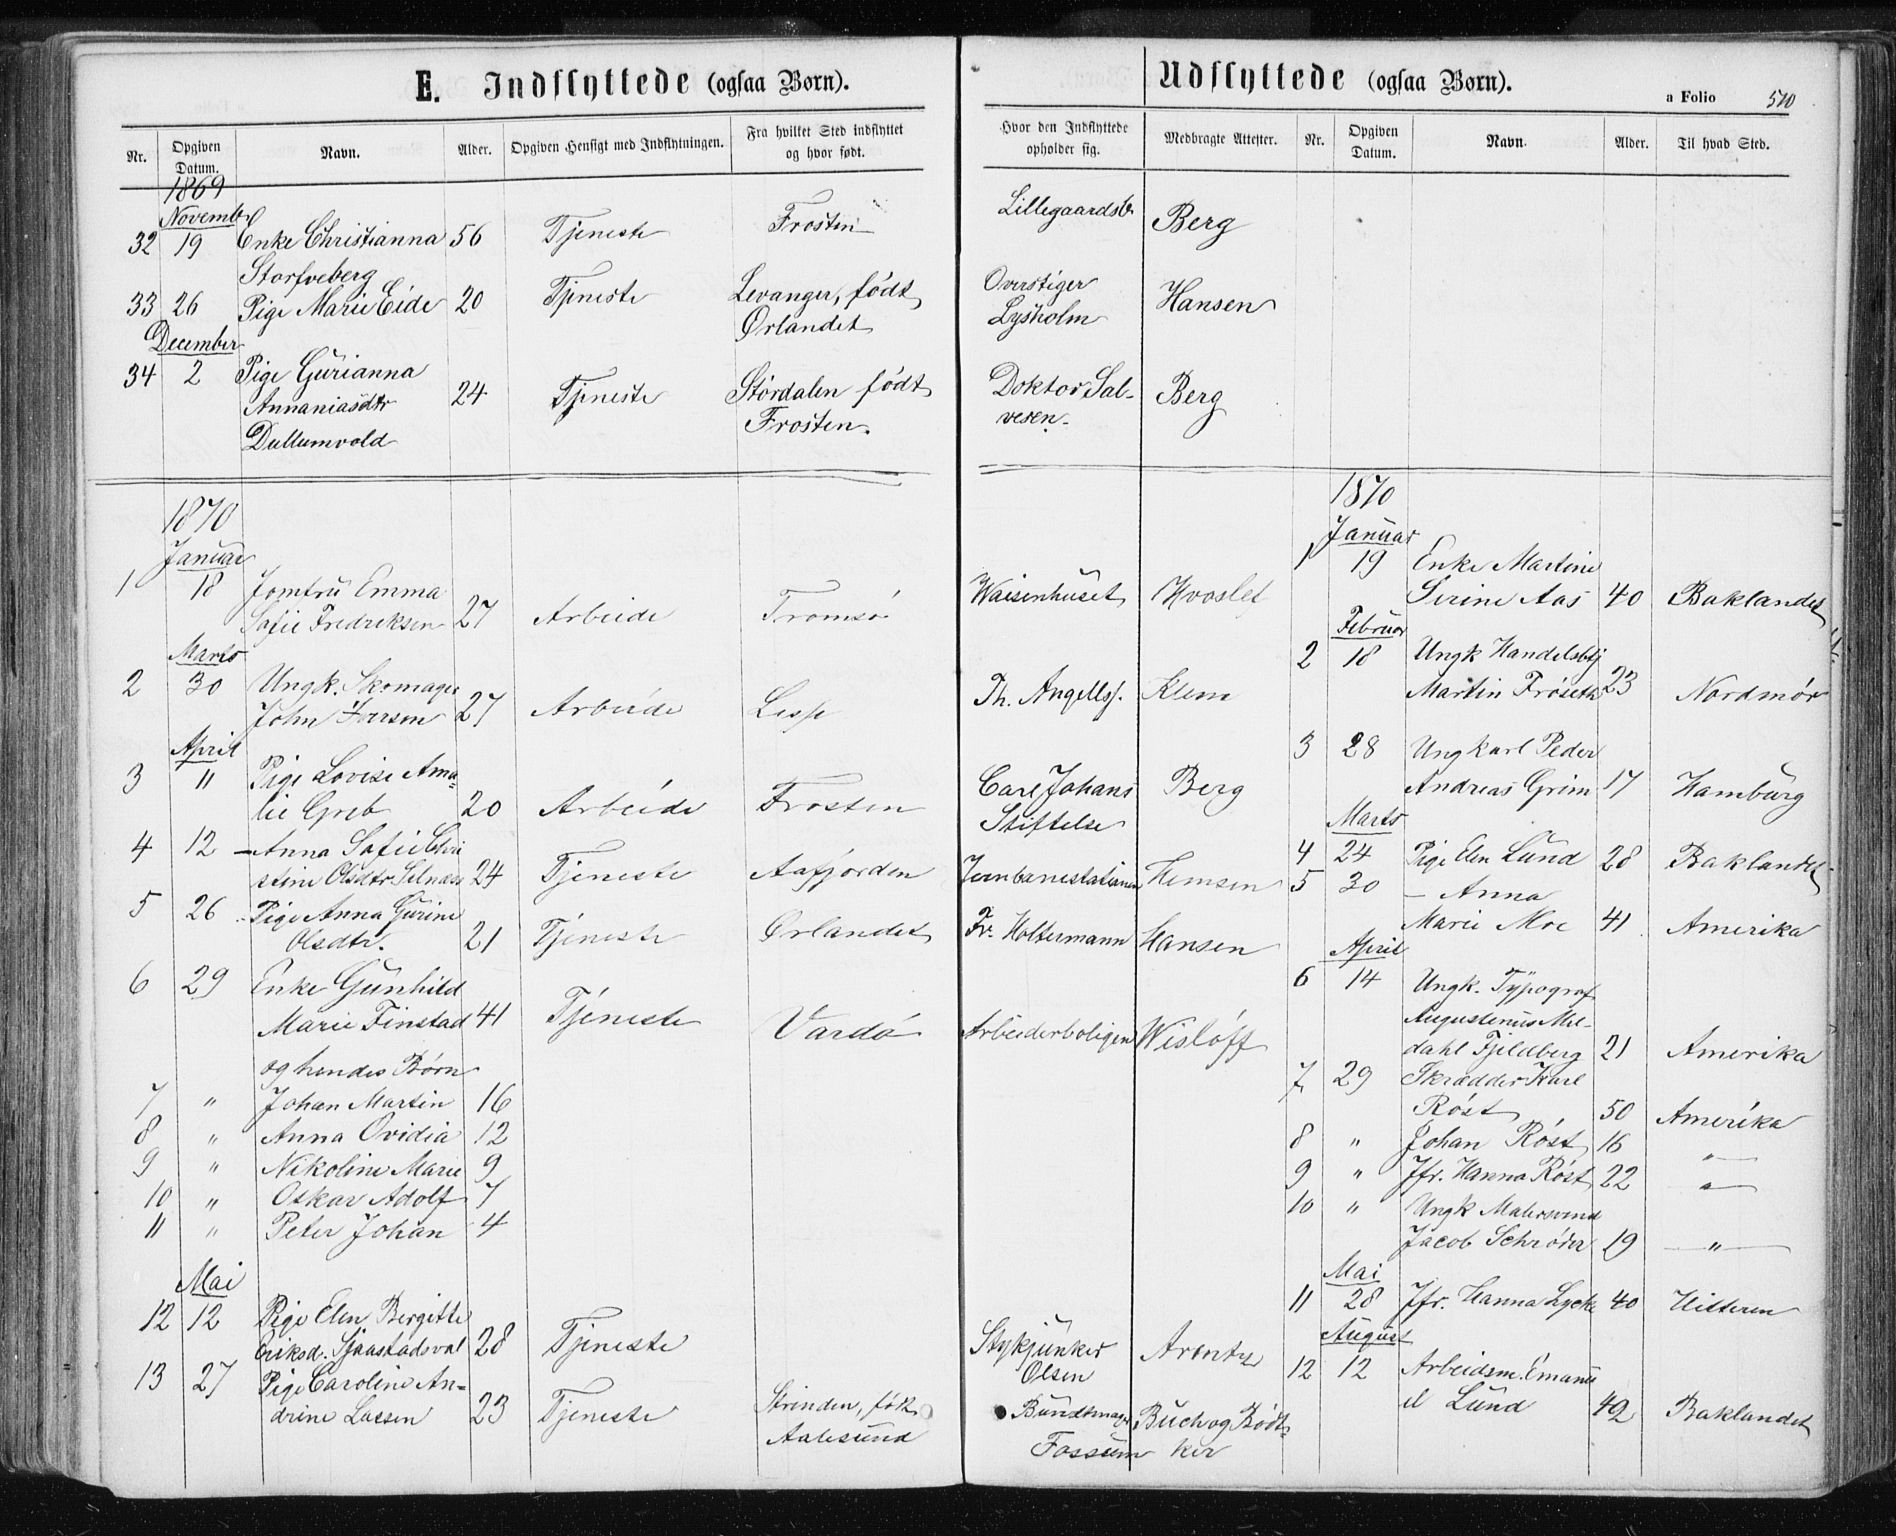 E. Indflyttede (ogsaa Børn).
Nr. Opgiven Datum. Navn. Alder. Opgiven Hensigt med Indflytningen. Fra hvilket Sted indflyttet og hvor født. Hvor den Indflyttede opholder sig. Medbragte Attester.
1869
Novembr
32 19 Enke Christianna 56 Tjeneste Frosten Lillegaardsb. Berg
Storfveberg
33 26 Pige Marie Eide 20 Tjeneste Levanger, født Overstiger Hansen
Ørlandet Lysholm
December
34 2 Pige Gurianna
Annaniasdtr 24 Tjeneste Størdalen født Doktor Sal- Berg
Dullumvold Frosten. vesen.
1870
Januar
1 18 Jomfru Emma
Sofie Fredriksen 27 Arbeide Tromsø Waisenhuset Hvoslef
Marts
2 30 Ungk. Skomager
John Iversen 27 Arbeide Lesje Th. Angellsg. Klem
April
3 11 Pige Lovise Ama-
lie Greb 20 Arbeide Frosten Carl Johans Berg
Stiftelse
4 12 — Anna Sofie Chri
stine Olsdtr. Selnæs 24 Tjeneste Aafjorden Jernbanestationen Hemsen
5 26 Pige Anna Gurine
Olsdtr. 21 Tjeneste Ørlandet Fr. Holtermann Hansen
6 29 Enke Gunhild
Marie Finstad 41 Tjeneste Vardø Arbeiderboligen Wisløff
og hendes Børn
7 " Johan Martin 16
8 " Anna Ovidia 12
9 " Nikoline Marie 9
10 " Oskar Adolf 7
11 " Peter Johan 4
Mai
12 12 Pige Elen Bergitte
Eriksd. Sjaastadsval 28 Tjeneste Stykjunker Arentz
Olsen
13 27 Pige Caroline An-
drine Lassen 23 Tjeneste Strinden, født Bundtmager Buch og Bødt-
Aalesund Fossum ker
Udflyttede (ogsaa Børn).
a Folio 510
Nr. Opgiven Datum. Navn. Alder. Til hvad Sted.
1870
Januar
1 19 Enke Martine
Sirine Aas 40 Baklandet
Februar
2 18 Ungk Handelsbtj
Martin Frøseth 23 Nordmør
3 28 Ungkarl Peder
Andreas Grim 17 Hamburg
Marts
4 24 Pige Elen Lund 28 Baklandet
5 30 — Anna
Marie Moe 41 Amerika
April
6 14 Ungk. Typograf
Augustenus Mel-
dahl Fjeldberg 21 Amerika
7 29 Skrædder Karl
Røst 50 Amerika
8 " Johan Røst 16 "
9 " Jfr. Hanna Røst 22 "
10 " Ungk Malersvend
Jacob Schrøder 19 "
Mai
11 28 Jfr. Hanna Lycke 40 Hitteren
August
12 12 Arbeidsm. Emanu
el Lund 42 Baklandet